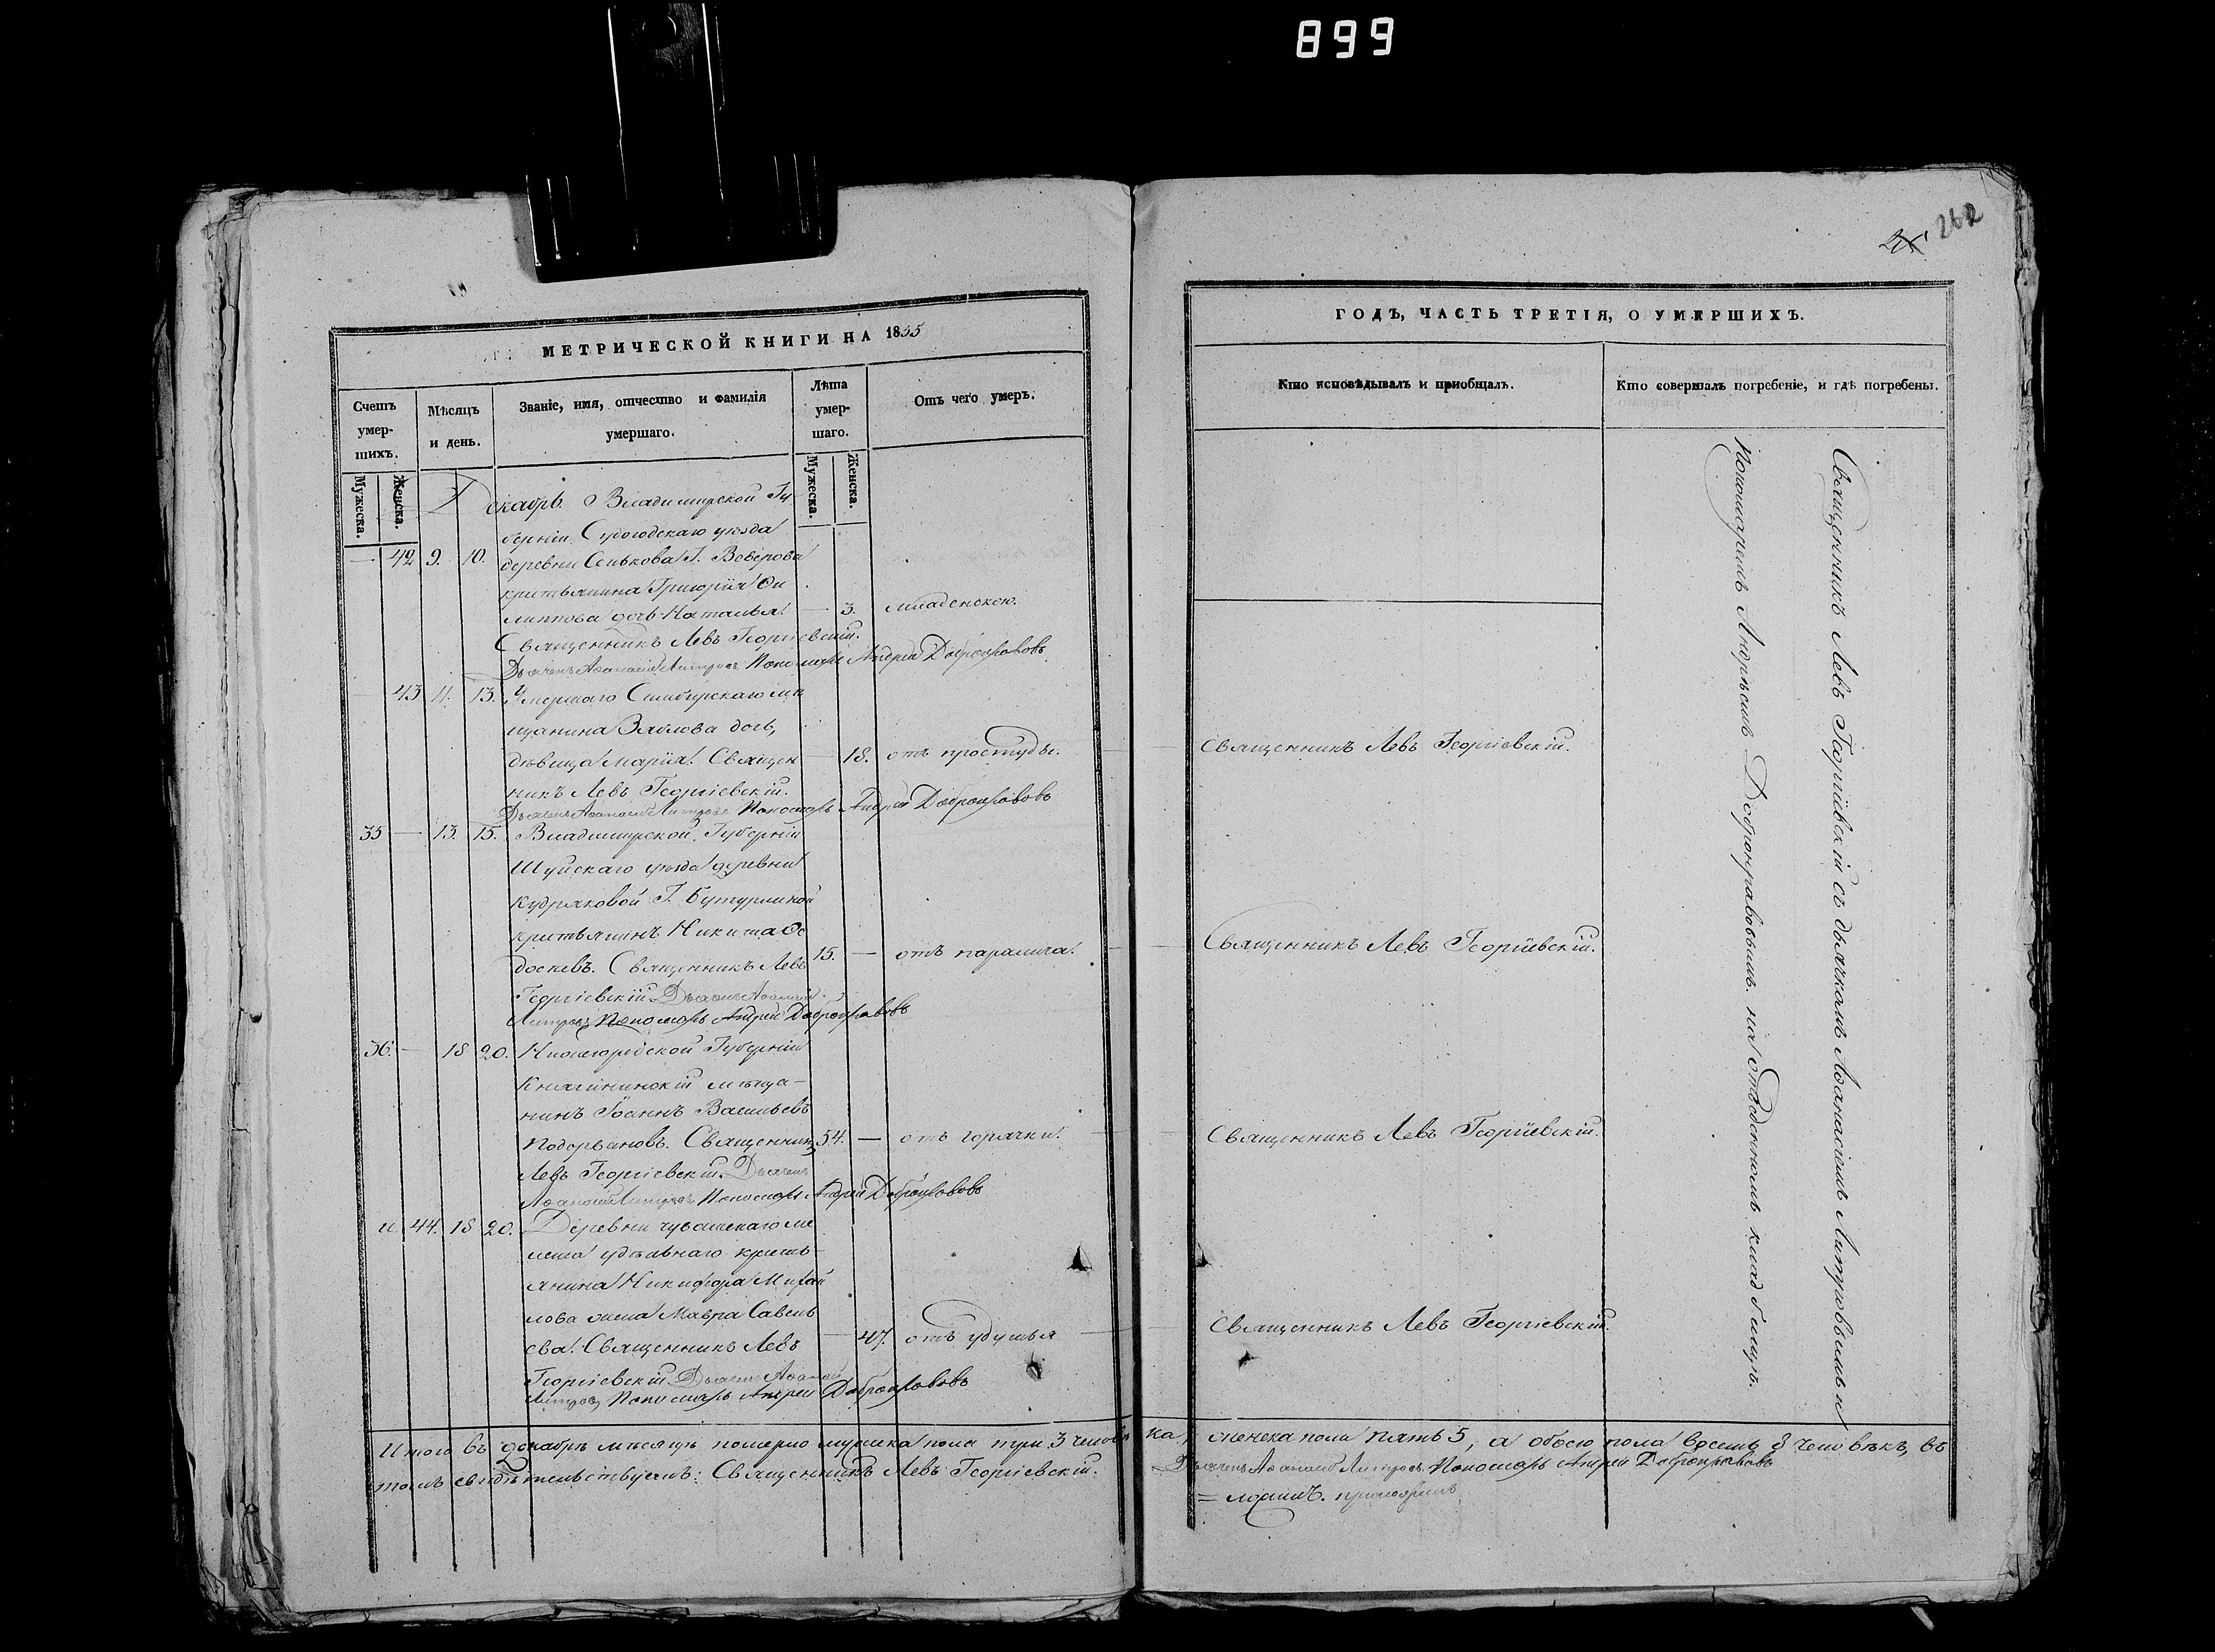 899
262
МЕТРИЧЕСКОЙ КНИГИ НА 1855
ГОДЪ, ЧАСТЬ ТРЕТІЯ, О УМЕРШИХЪ.
Счетъ умер-шихъ.
Мужеска.
Женска.
Мѣсяцъ и день.
Званіе, имя, отчество и фамилія
умершаго.
Лѣта умер-шаго.
Мужеска.
Женска.
Отъ чего умеръ.
Кто исповѣдывалъ и приобщалъ.
Кто совершалъ погребеніе, и гдѣ погребены.
Декабрь. Владимирской Гу
берніи Судогодскаго уѣзда
— 42 9. 10. деревни Сенькова Г.
крестьянина Григорія Фи
липпова дочь Наталья. — 3. младенскою.
Священникъ Левъ Георгіевскій.
Дьячекъ Аѳанасій Пономарь Андрей Добронравовъ
43 11. 13. Умершаго Симбирскаго мѣ
щанина Зяблова дочь,
дѣвица Марія. Священ — 18. отъ простуды.
никъ Левъ Георгіевскій.
Дьячекъ Аѳанасій Пономарь Андрей Добронравовъ
Священникъ Левъ Георгіевскій.
35 — 13. 15. Владимирской Губерніи
Шуйскаго уѣзда деревни
Кудряковой Г. Бутурлиной
крестьянинъ Никита Ѳе
досеевъ. Священникъ Левъ 15. — отъ паралича.
Георгіевскій Дьячекъ Аѳанасій
Пономарь Андрей Добронравовъ
Священникъ Левъ Георгіевскій.
36. — 18 20. Нижегородской Губерніи
Княгининскій мѣща-
нинъ Іоаннъ Васильевъ
Подорвановъ. Священникъ 54. — отъ горячки.
Левъ Георгіевскій. Дьячекъ
Аѳанасій Пономарь Андрей Добронравовъ
Священникъ Левъ Георгіевскій.
и 44. 18 20. Деревни чувашскаго ме
лекеса удѣльнаго кресть-
янина Никифора Михай
лова жена Мавра Савель
ева. Священникъ Левъ — 47. отъ удушья
Георгіевскій Дьячекъ Аѳанасій
Пономарь Андрей Добронравовъ
Священникъ Левъ Георгіевскій.
Священникъ Левъ Георгіевскій съ дьячкомъ Аѳанасіемъ и
Пономаремъ Андреемъ Добронравовымъ на отведенномъ кладбищѣ.
Итого въ декабрѣ мѣсяцѣ померло мужеска пола три 3 человѣка, женска пола пять 5, а обоего пола восемь 8 человѣкъ, въ
томъ свидѣтельствуемъ: Священникъ Левъ Георгіевскій. Дьячекъ Аѳанасій Пономарь Андрей Добронравовъ